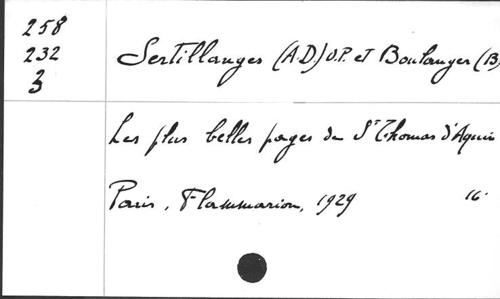 258
232
3
Sertillanges (A.D) O.P. et Boulanger (B)
Les plus belles pages de St Thomas d'Aquin
Paris, Flammarion, 1929 16°